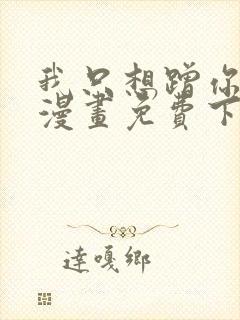 我只想蹭你
漫畫免費下
達嘎鄉